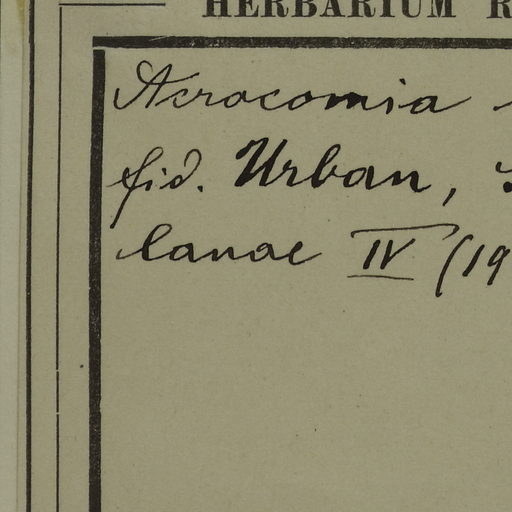 HERBARIUM R
Acrocomia
fid. Urban,
lanae IV (19